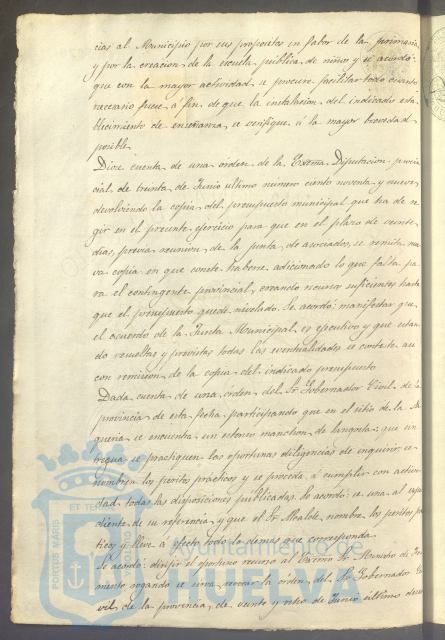 cias al Municipio por sus propositos en fabor de la primaria
y por la creacion de la escuela publica de niños y se acordó:
que con la mayor actividad se procure facilitar todo cuanto
necesario fuese á fin de que la instalacion del indicado esta
blecimiento de enseñanza se verifique á la mayor brevedad
posible.
Diose cuenta de una orden de la Excma. Diputacion provin
cial, de treinta de Junio ultimo numero ciento noventa y nueve,
devolviendo la copia del presupuesto municipal que ha de re
gir en el presente ejercicio para que en el plazo de veinte
dias, previa reunion de la junta de asociados, se remita nue
va copia en que conste haberse adicionado lo que falta pa
ra el contingente provincial, creando recursos suficientes hasta
que el presupuesto quede nivelado. Se acordó: manifestar que
el acuerdo de la Junta Municipal es ejecutivo y que estan
do resueltas y previstas todas las eventualidades se conteste asi
con remision de la copia del indicado presupuesto.
Dada cuenta de una orden del Sr. Gobernador Civil de la
provincia de esta fecha participando que en el sitio de la
se encuentra un estenso manchon de langosta: que sin
tregua se practiquen las oportunas diligencias de inquirir, se
nombren los peritos practicos y se proceda á cumplir con activi
dad todas las disposiciones publicadas. Se acordó: se una al espe
diente de su referencia y que el Sr. Alcalde nombre los peritos prac
ticos y lleve á efecto todo lo demas que corresponda.
Se acordó: dirigir el oportuno recurso al Excmo. Sr. Ministro de Fo
mento rogando se sirva revocar la orden del Sr. Gobernador Ci
vil de la provincia, de veinte y ocho de Junio ultimo
PORTUS MARIS
ET TERRÆ
Ayuntamiento de
HUELVA